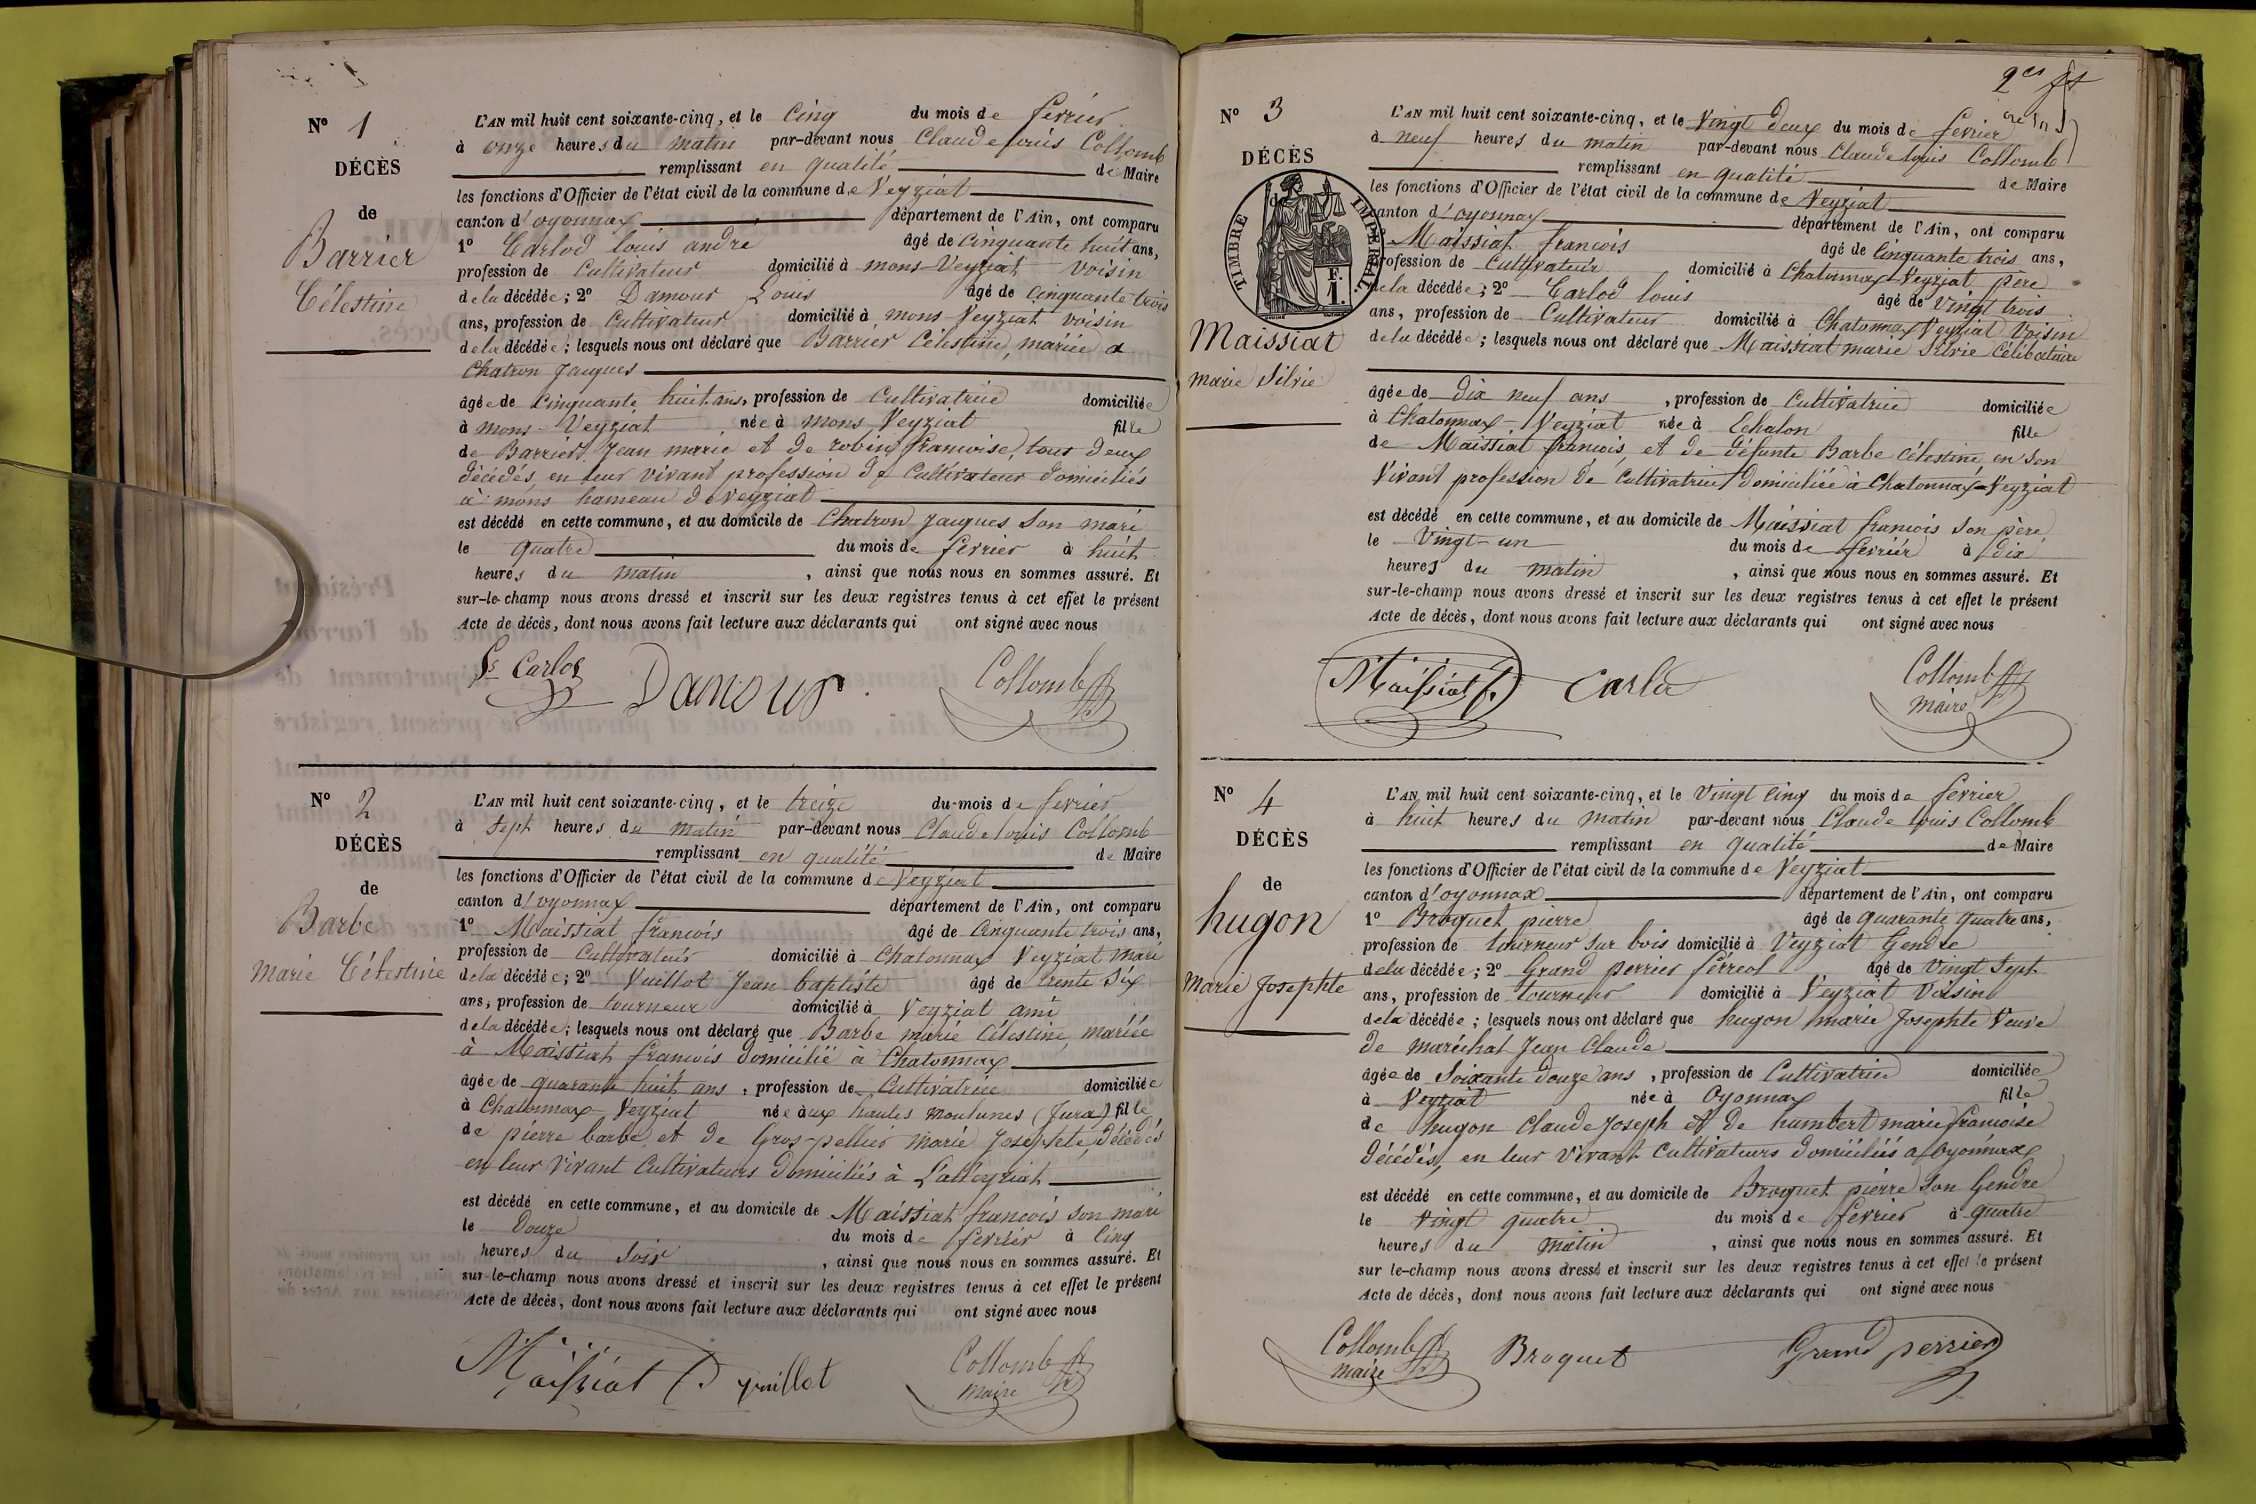 N° 1
DÉCÈS
de
Barrier
Célestine
L'AN mil huit cent soixante-cinq, et le Cinq du mois de fevrier
à onze heures du matin par-devant nous Claude louis Collomb
remplissant en qualité de Maire
les fonctions d'Officier de l'état civil de la commune de Veyziat
canton d'oyonnax département de l'Ain, ont comparu
1° Carlod louis andré âgé de Cinquante huit ans,
profession de Cultivateur domicilié à mons-Veyziat voisin
de la décédée; 2° Damour Louis âgé de Cinquante trois
ans, profession de Cultivateur domicilié à mons-Veyziat voisin
de la décédée; lesquels nous ont déclaré que Barrier Célestine, mariée a
Chatron Jacques
âgée de Cinquante huit ans, profession de Cultivatrice domiciliée
à mons-Veyziat née à mons Veyziat fille
de Barrier Jean marie et de robin francoise, tous deux
décédés, en leur vivant profession de Cultivateur domiciliés
à mons hameau de Veyziat
est décédé en cette commune, et au domicile de Chatron Jacques Son mari
le quatre du mois de fevrier à huit
heures du matin, ainsi que nous nous en sommes assuré. Et
sur-le-champ nous avons dressé et inscrit sur les deux registres tenus à cet effet le présent
Acte de décès, dont nous avons fait lecture aux déclarants qui ont signé avec nous
Carlod Damour Collomb
N° 2
DÉCÈS
de
Barbe
Marie Célestine
L'AN mil huit cent soixante-cinq, et le treize du mois de fevrier
à Sept heures du matin par-devant nous Claude louis Collomb
remplissant en qualité de Maire
les fonctions d'Officier de l'état civil de la commune de Veyziat
canton d'oyonnax département de l'Ain, ont comparu
1° Maissiat francois âgé de Cinquante trois ans,
profession de Cultivateur domicilié à Chatonnax Veyziat mari
de la décédée; 2° Vuillot Jean baptiste âgé de trente Six
ans, profession de tourneur domicilié à Veyziat ami
de la décédée; lesquels nous ont déclaré que Barbe marie Célestine, mariée
à Maissiat francois domicilié à Chatonnax
âgée de quarante huit ans, profession de Cultivatrice domiciliée
à Chatonnax-Veyziat née aux hautes moulunes (Jura) fille
de pierre barbe et de Gros-pellier Marie Josephte, décédés
en leur vivant Cultivateurs domiciliés à Lalleyriat
est décédé en cette commune, et au domicile de Maissiat francois son mari
le Douze du mois de fevrier à Cinq
heures du Soir, ainsi que nous nous en sommes assuré. Et
sur-le-champ nous avons dressé et inscrit sur les deux registres tenus à cet effet le présent
Acte de décès, dont nous avons fait lecture aux déclarants qui ont signé avec nous
Maissiat f vuillot Collomb
maire
N° 3
DÉCÈS
TIMBRE IMPÉRIAL
Maissiat
marie Silvie
L'AN mil huit cent soixante-cinq, et le Vingt deux du mois de fevrier
à neuf heures du matin par-devant nous Claude louis Collomb
remplissant en qualité de Maire
les fonctions d'Officier de l'état civil de la commune de Veyziat
canton d'oyonnax département de l'Ain, ont comparu
Maissiat francois âgé de Cinquante trois ans,
profession de Cultivateur domicilié à Chatonnax-Veyziat, père
de la décédée; 2° Carlod louis âgé de Vingt trois
ans, profession de Cultivateur domicilié à Chatonnax Veyziat Voisin
de la décédée; lesquels nous ont déclaré que Maissiat marie Silvie Célibataire
âgée de Dix neuf ans, profession de Cultivatrice domiciliée
à Chatonnax-Veyziat née à Echalon fille
de Maissiat francois, et de défunte Barbe Célestine en Son
Vivant profession de Cultivatrice domiciliée à Chatonnax-Veyziat
est décédé en cette commune, et au domicile de Maissiat francois Son père
le Vingt-un du mois de fevrier à dix
heures du matin, ainsi que nous nous en sommes assuré. Et
sur-le-champ nous avons dressé et inscrit sur les deux registres tenus à cet effet le présent
Acte de décès, dont nous avons fait lecture aux déclarants qui ont signé avec nous
Maissiat f. Carlod Collomb
maire
N° 4
DÉCÈS
de
hugon
Marie Josephte
L'AN mil huit cent soixante-cinq, et le Vingt Cinq du mois de fevrier
à huit heures du matin par-devant nous Claude louis Collomb
remplissant en qualité de Maire
les fonctions d'Officier de l'état civil de la commune de Veyziat
canton d'oyonnax département de l'Ain, ont comparu
1° Broquet pierre âgé de quarante quatre ans,
profession de tourneur sur bois domicilié à Veyziat Gendre
de la décédée; 2° Grand perrier férréol âgé de Vingt Sept
ans, profession de tourneur domicilié à Veyziat Voisin
de la décédée; lesquels nous ont déclaré que hugon marie Josephte Veuve
de maréchal Jean Claude
âgée de Soixante douze ans, profession de Cultivatrice domiciliée
à Veyziat née à Oyonnax fille
de hugon Claude Joseph et de humbert marie francoise
décédés, en leur vivant Cultivateurs domiciliés a oyonnax
est décédé en cette commune, et au domicile de Broquet pierre Son Gendre
le Vingt quatre du mois de fevrier à quatre
heures du matin, ainsi que nous nous en sommes assuré. Et
sur le-champ nous avons dressé et inscrit sur les deux registres tenus à cet effet le présent
Acte de décès, dont nous avons fait lecture aux déclarants qui ont signé avec nous
Collomb Broquet Grand perrier
maire